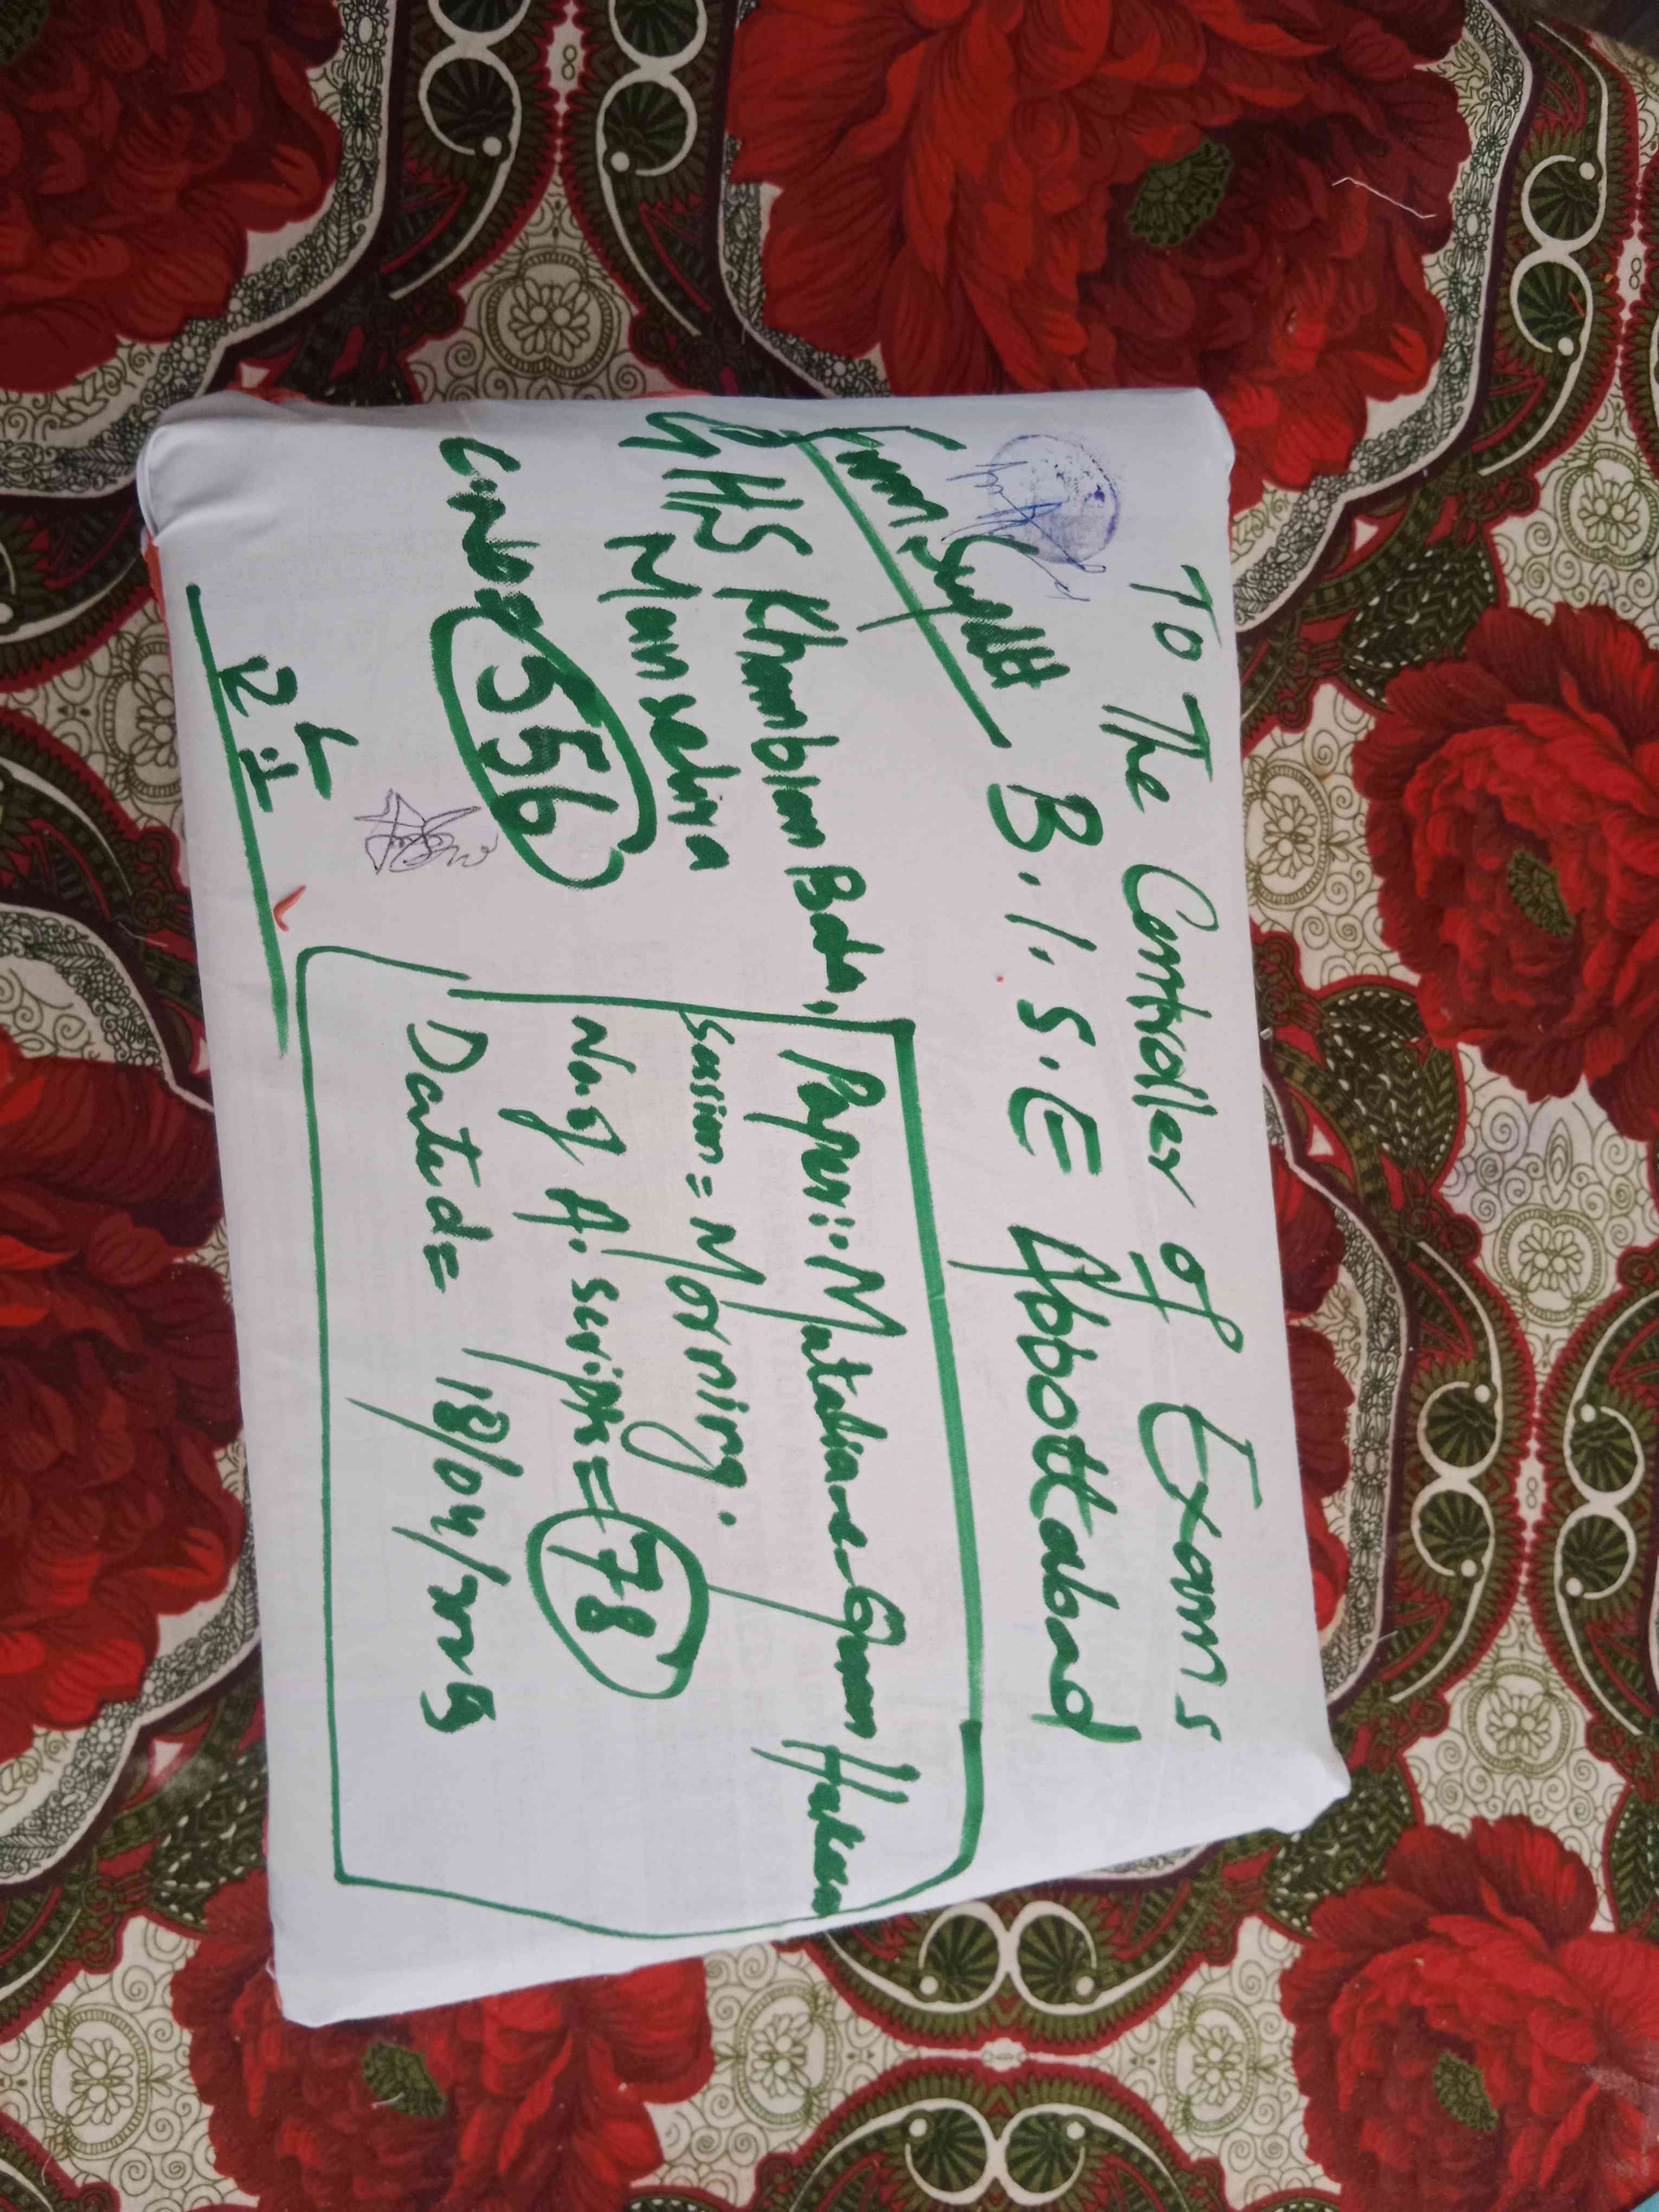 To The Controller of Exams
B.I.S.E Abbottabad
From, Suptt
GHS Khambian Bada,
Mansehra
Code 556
Paper:- Mutalia-e-Quran Hakeem
Session = Morning.
No. of A. scripts = 78
Dated = 18/04/2025